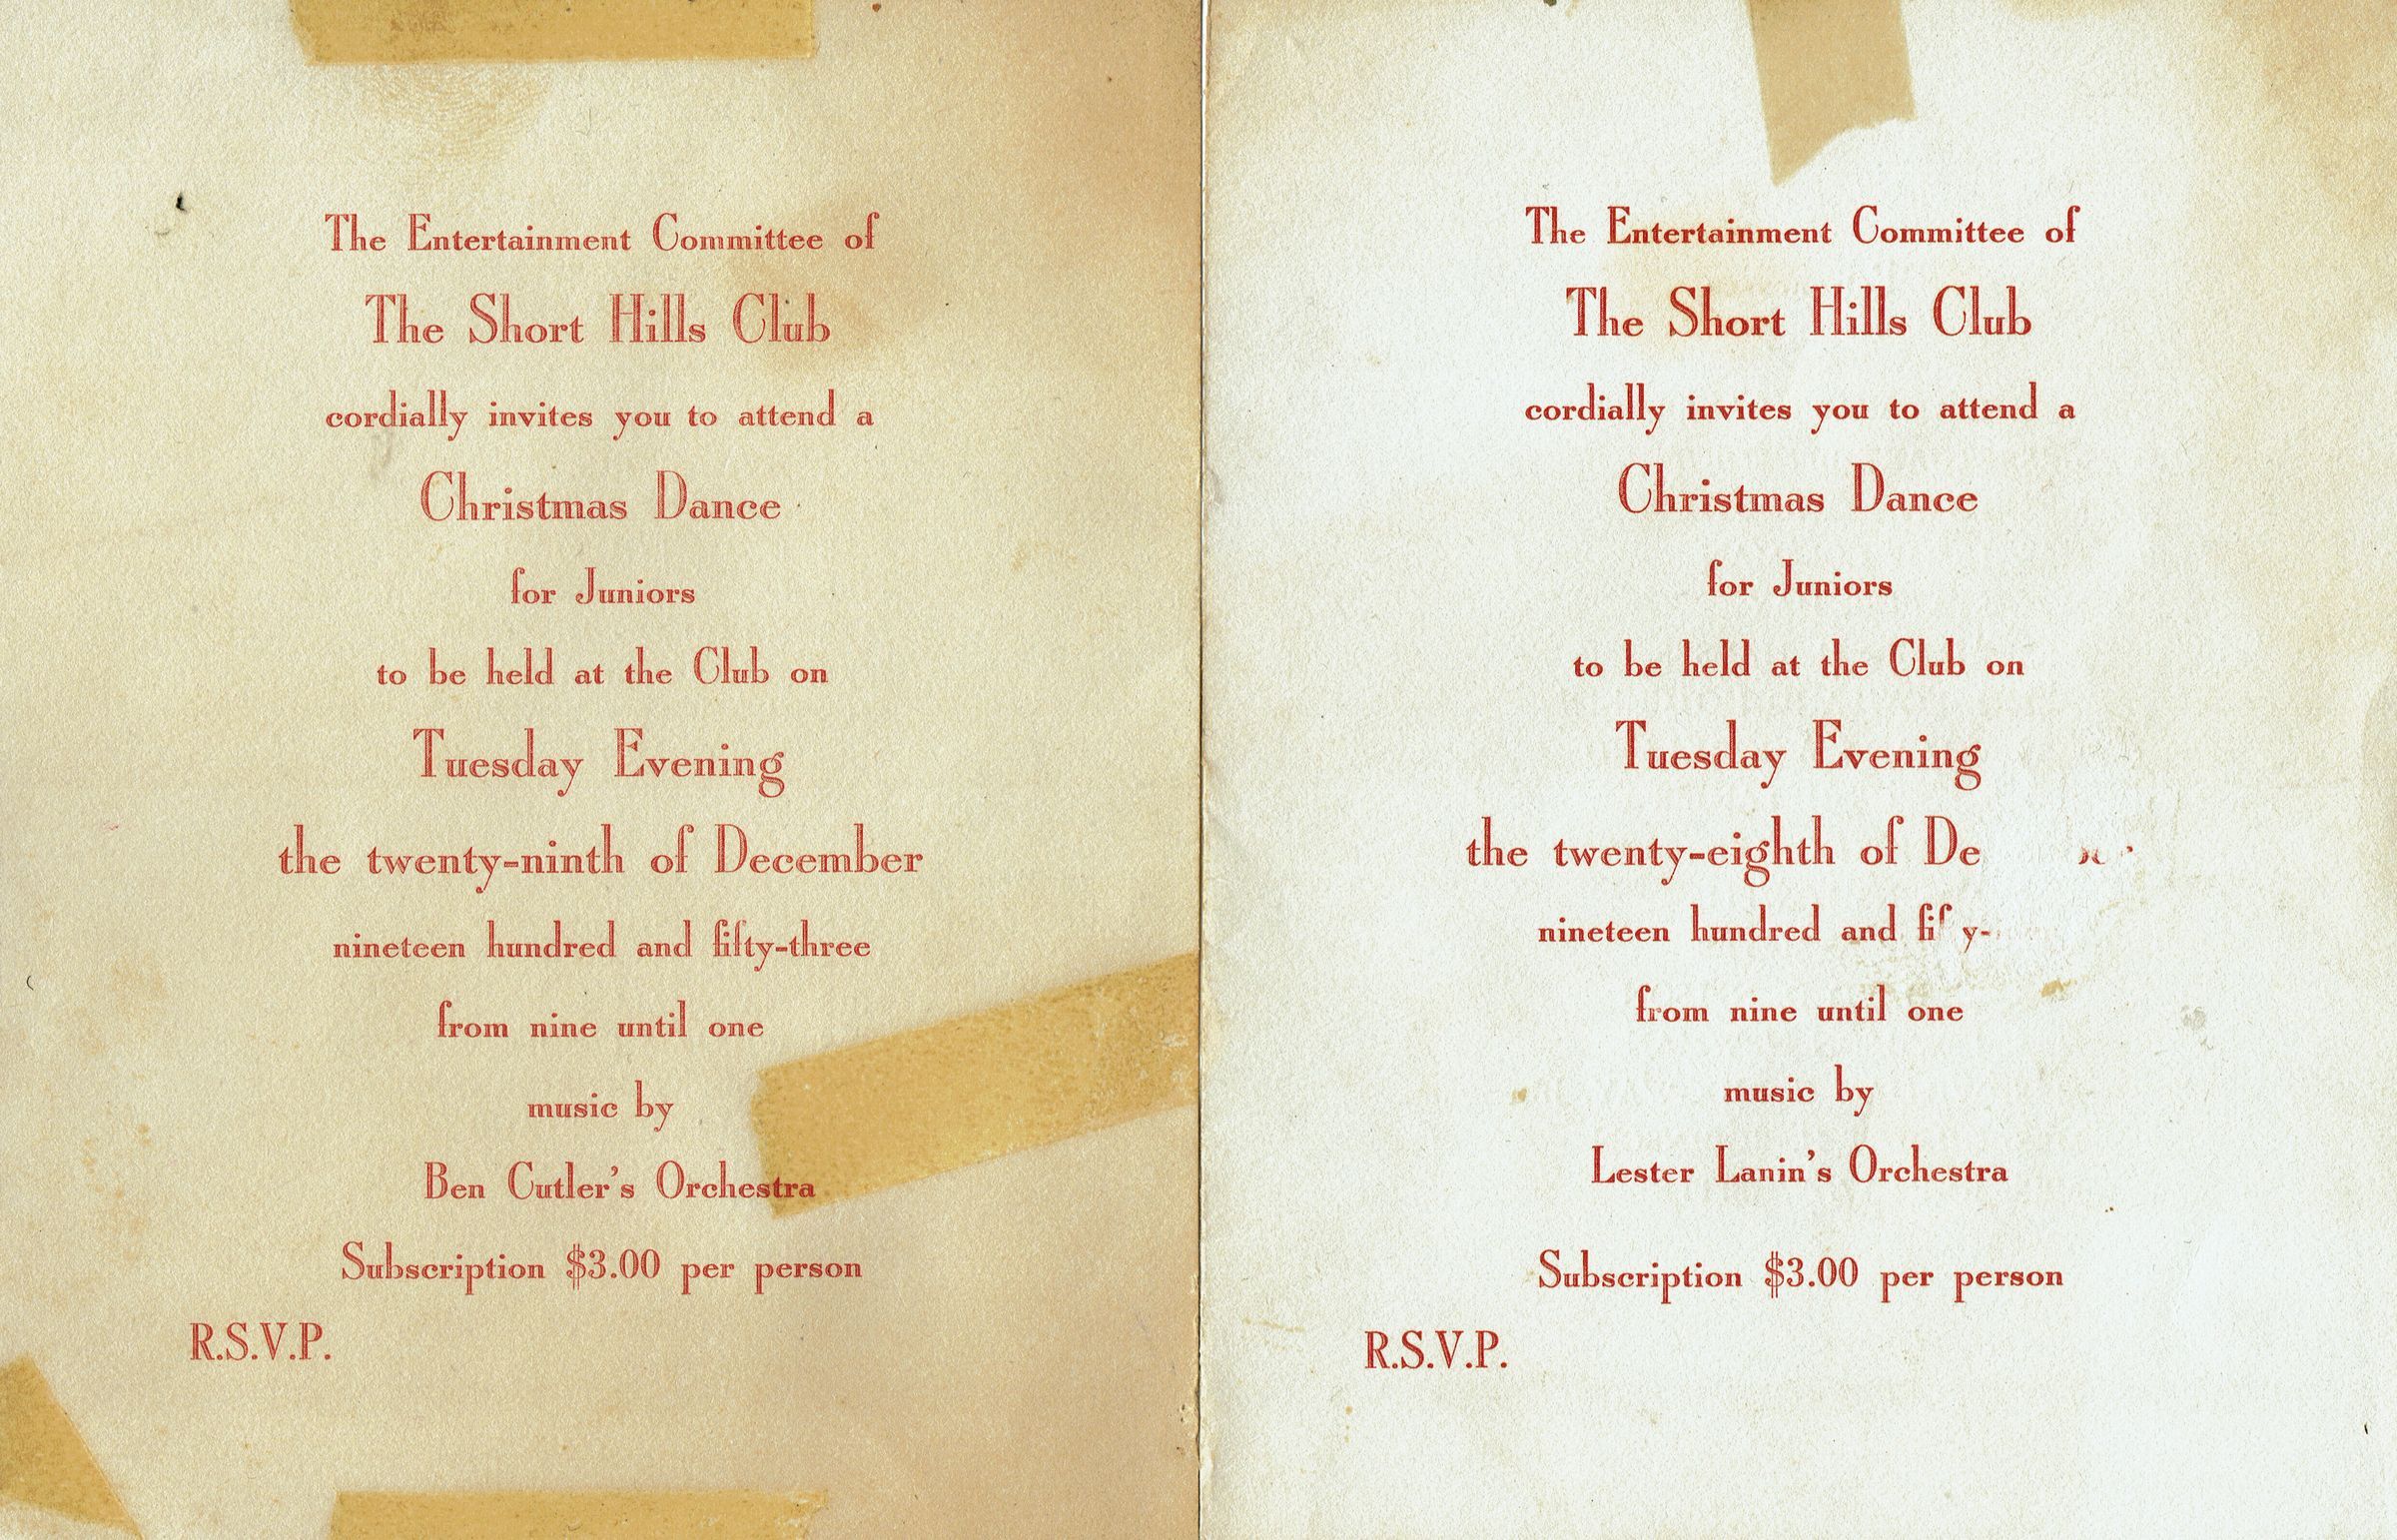 The Entertainment Committee of
The Short Hills Club
cordially invites you to attend a
Christmas Dance
for Juniors
to be held at the Club on
Tuesday Evening
the twenty-ninth of December
nineteen hundred and fifty-three
from nine until one
music by
Ben Cutler's Orchestra
Subscription $3.00 per person
R.S.V.P.
The Entertainment Committee of
The Short Hills Club
cordially invites you to attend a
Christmas Dance
for Juniors
to be held at the Club on
Tuesday Evening
the twenty-eighth of De
nineteen hundred and
from nine until one
music by
Lester Lanin's Orchestra
Subscription $3.00 per person
R.S.V.P.